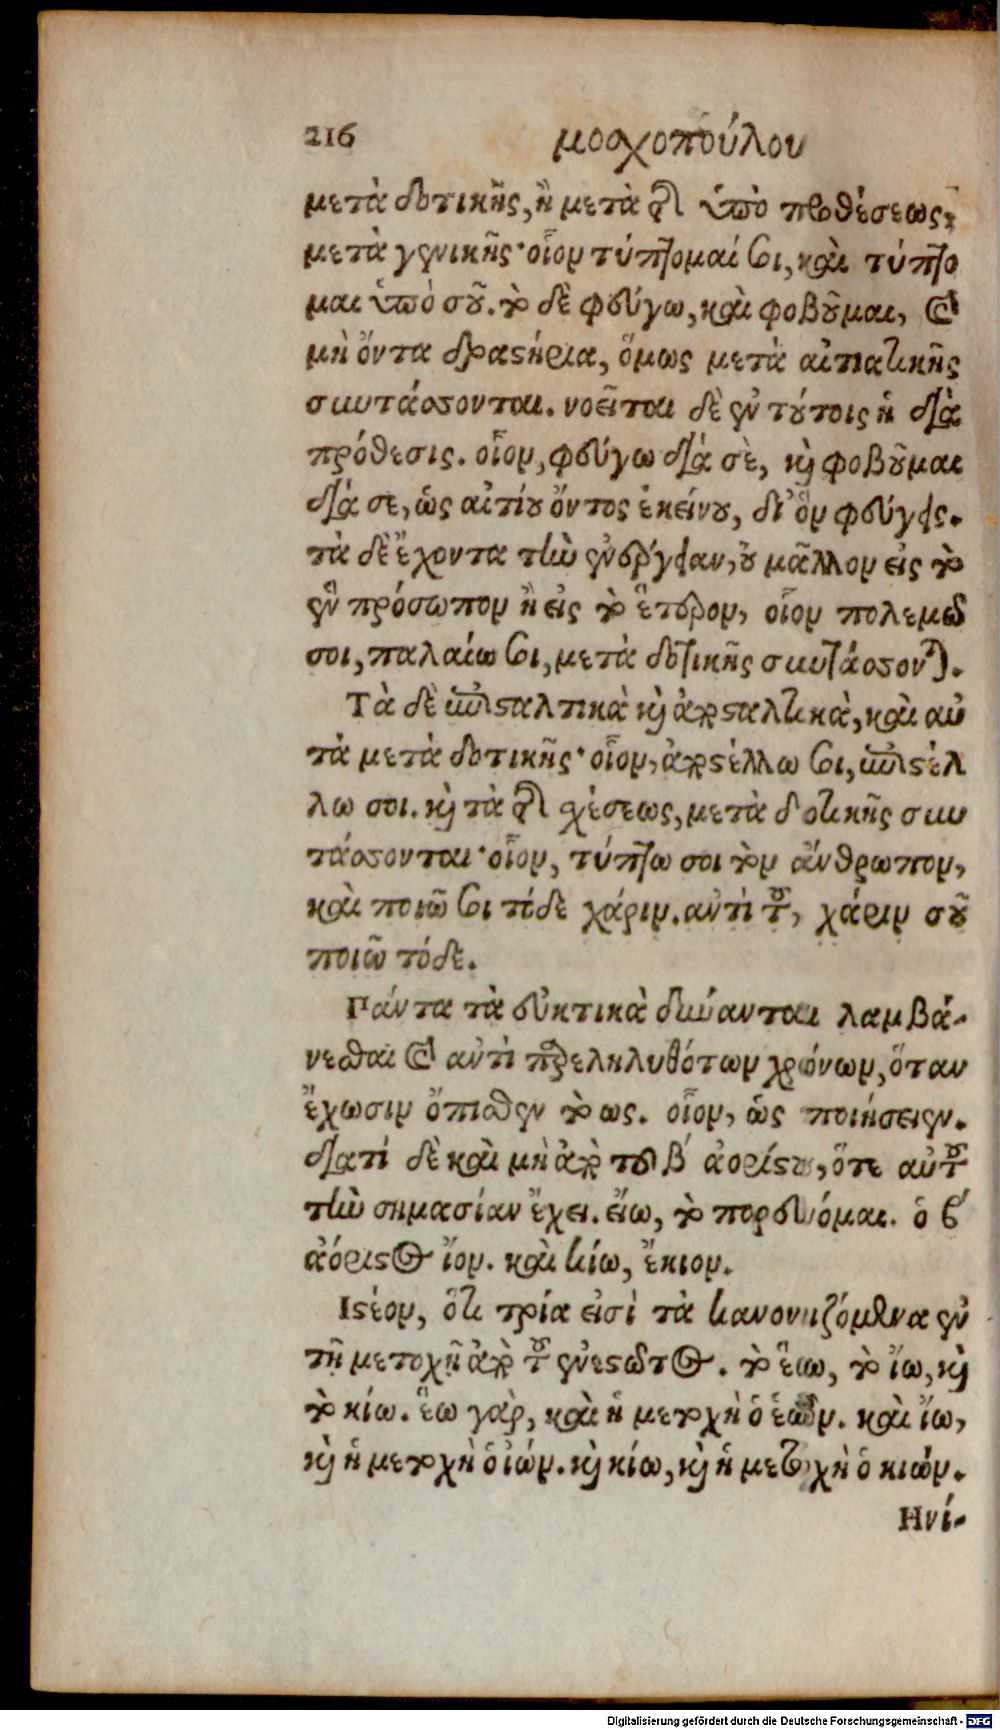 216 μοσχοπούλου
μετὰ δοτικῆς, ἢ μετὰ τῆς ὑπὸ προθέσεως,
μετὰ γενικῆς· οἷον τύπτομαί σοι, καὶ τύπτο
μαι ὑπὸ σοῦ. τὸ δὲ φεύγω, καὶ φοβοῦμαι, καὶ
μὴ ὄντα δραστήρια, ὅμως μετὰ αἰτιατικῆς
συντάσσονται. νοεῖται δὲ ἐν τούτοις ἡ διὰ
πρόθεσις. οἷον, φεύγω διά σὲ, καὶ φοβοῦμαι
διά σε, ὡς αἰτίου ὄντος ἐκείνου, δι' ὃν φεύγεις.
τὰ δὲ ἔχοντα τὴν ἐνέργειαν, οὐ μᾶλλον εἰς τὸ
ἓν πρόσωπον ἢ εἰς τὸ ἕτερον, οἷον πολεμῶ
σοι, παλαίω σοι, μετὰ δοτικῆς συντάσσονται.
Τὰ δὲ ἐπισταλτικὰ καὶ ἀποσταλτικὰ, καὶ αὐ
τὰ μετὰ δοτικῆς· οἷον, ἀποστέλλω σοι, ἐπιστέλ
λω σοι. καὶ τὰ τῆς σχέσεως, μετὰ δοτικῆς συν
τάσσονται· οἷον, τύπτω σοι τὸν ἄνθρωπον,
καὶ ποιῶ σοι τόδε χάριν. ἀντὶ τοῦ, χάριν σοῦ
ποιῶ τόδε.
Πάντα τὰ εὐκτικὰ δύνανται λαμβά-
νεσθαι καὶ ἀντὶ παρεληλυθότων χρόνων, ὅταν
ἔχωσιν ὄπισθεν τὸ ως. οἷον, ὡς ποιήσειεν.
διατί δὲ καὶ μὴ ἀπὸ τοῦ β' ἀορίστου, ὅτε αὐτοῦ
τὴν σημασίαν ἔχει. εἴω, τὸ πορεύομαι. ὁ β'
ἀόριστος ἴον. καὶ κίω, ἔκιον.
Ιστέον, ὅτι τρία εἰσὶ τὰ κανονιζόμενα ἐν
τῇ μετοχῇ ἀπὸ τοῦ ἐνεστῶτος. τὸ ἔω, τὸ ἴω, καὶ
τὸ κίω. ἔω γὰρ, καὶ ἡ μετοχὴ ὁ ἐών. καὶ ἴω,
καὶ ἡ μετοχὴ ὁ ἰών. καὶ κίω, καὶ ἡ μετοχὴ ὁ κιών.
Ηνί-
Digitalisierung gefördert durch die Deutsche Forschungsgemeinschaft - DFG